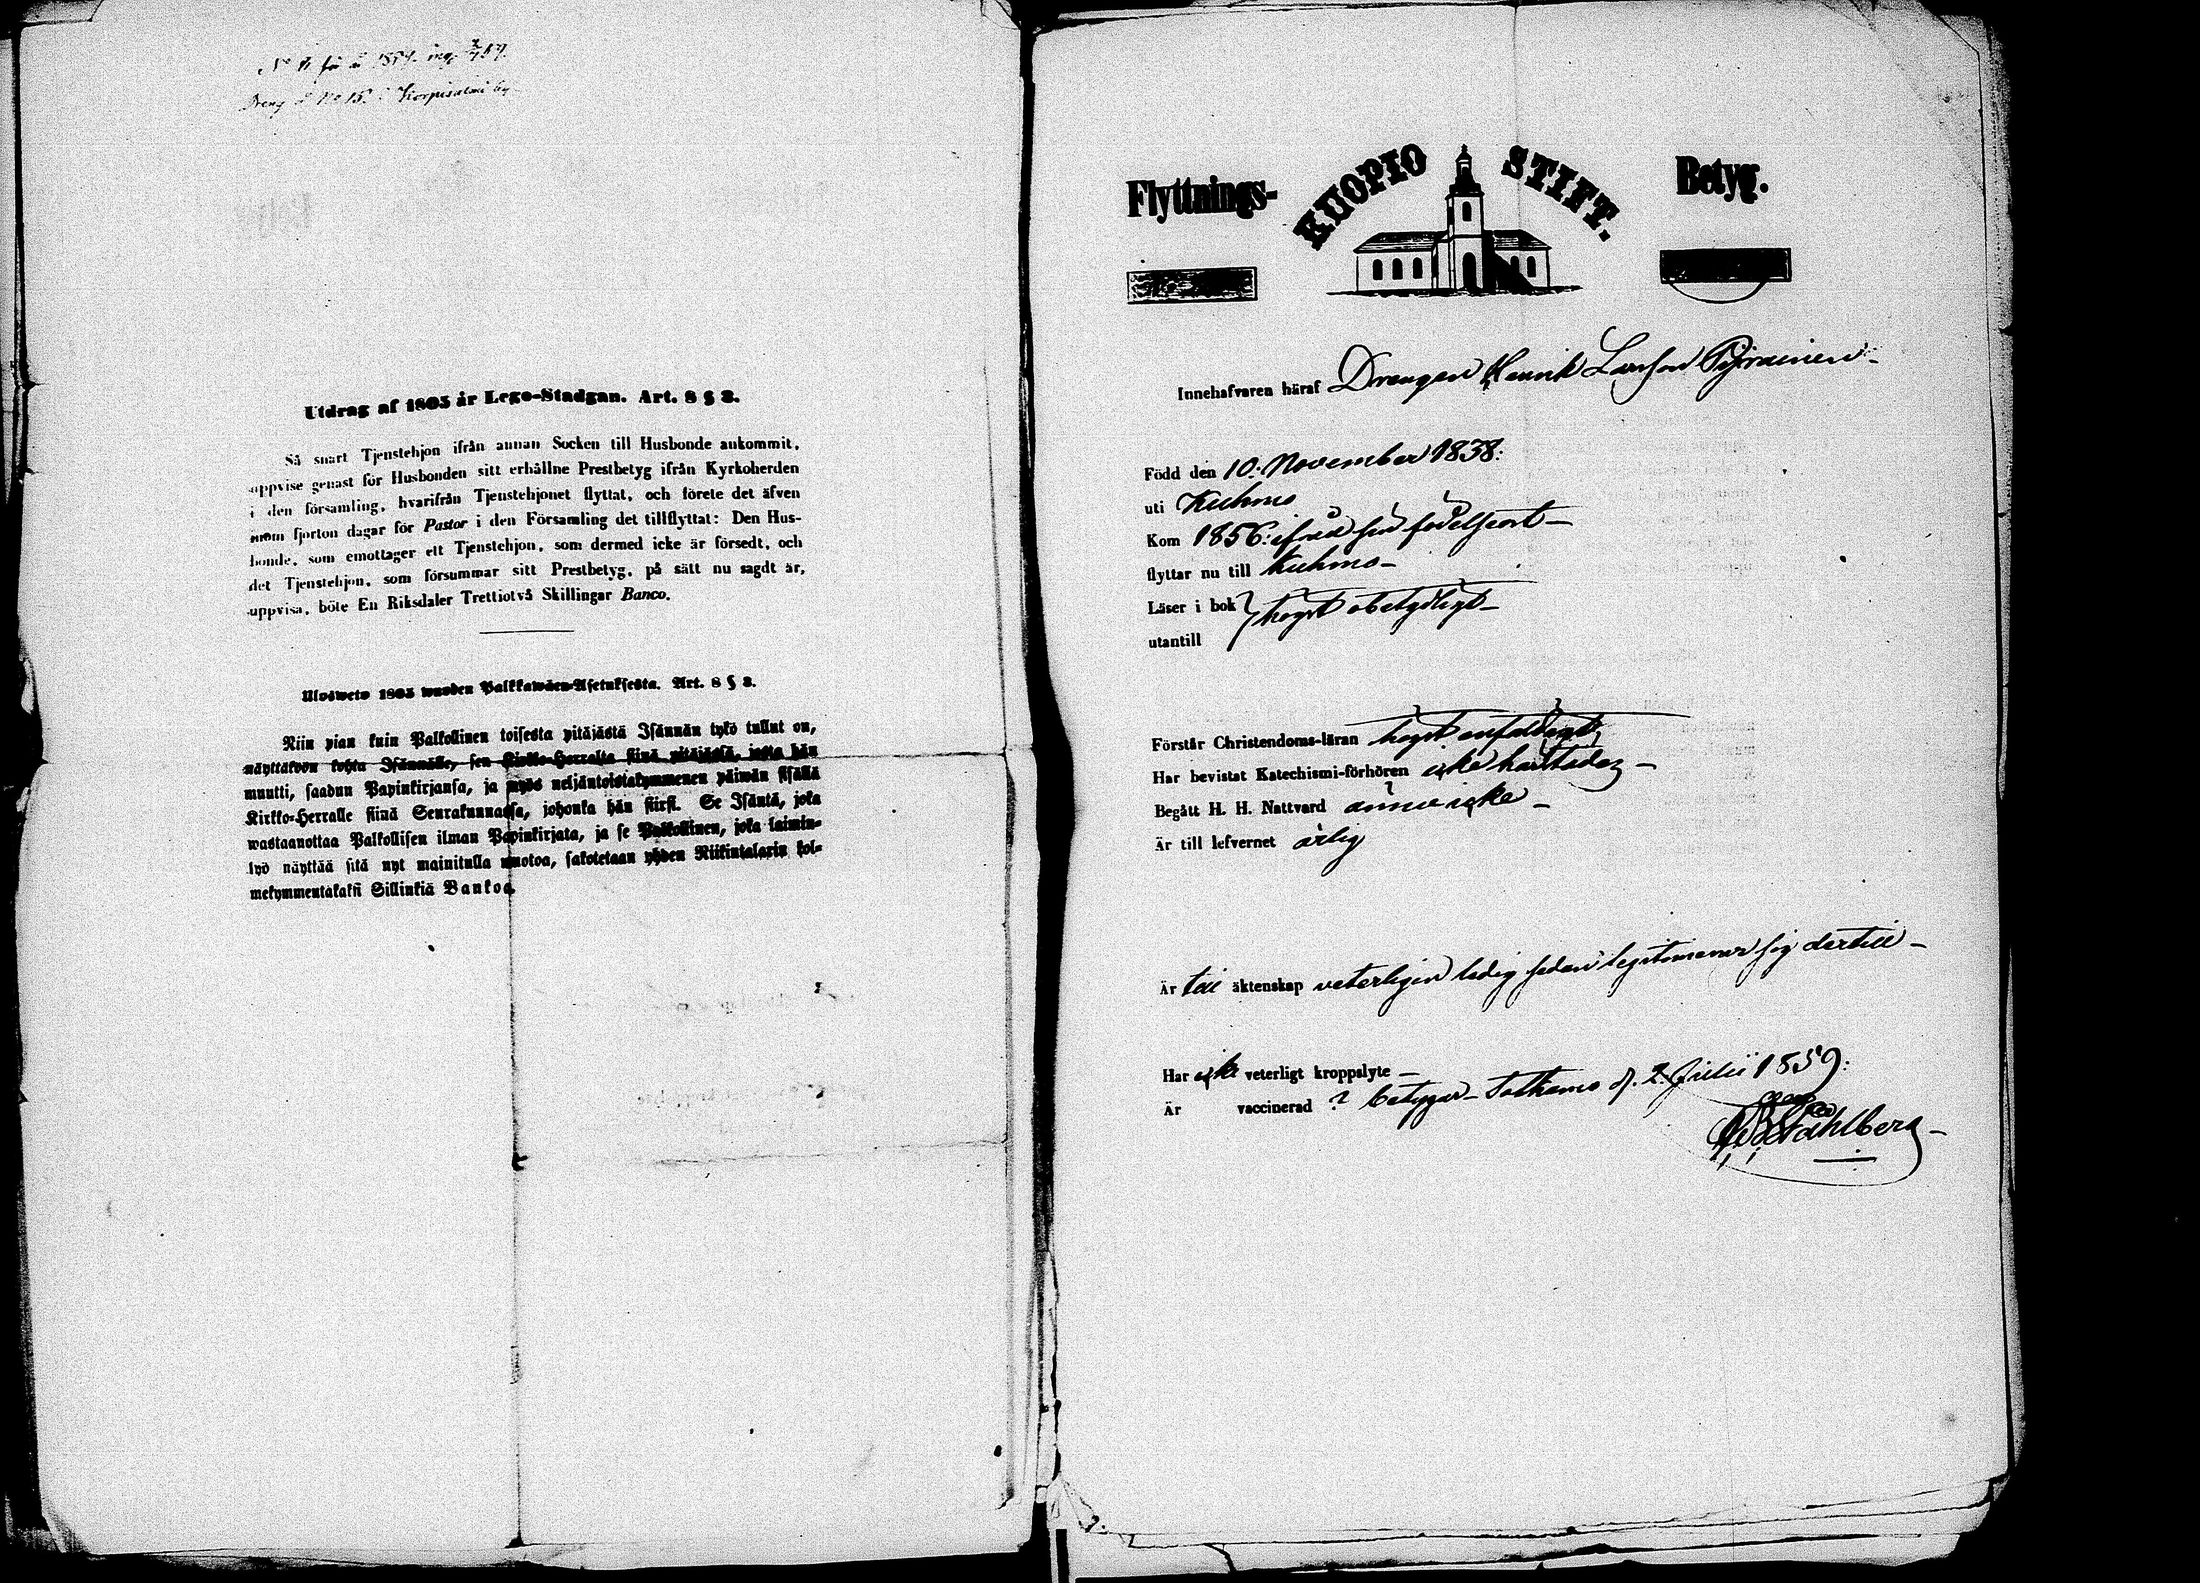 No 11 för år 1859. ing. 3/7 59.
Dreng å No 15. i Korpisalmi by
Utdrag af 1805 år Lego-Stadgan. Art. 8 § 2.
Så snart Tjenstehjon ifrån annan Socken till Husbonde ankommit,
uppvise genast för Husbonden sitt erhållne Prestbetyg ifrån Kyrkoherden
i den församling, hvarifrån Tjenstehjonet flyttat, och förete det äfven
inom fjorton dagar för Pastor i den Församling det tillflyttat: Den Hus-
bonde, som emottager ett Tjenstehjon, som dermed icke är försedt, och
det Tjenstehjon, som försummar sitt Prestbetyg, på sätt nu sagdt är,
uppvisa, böte En Riksdaler Trettiotvå Skillingar Banco.
Ulosweto 1805 wuoden Palkkawäen-Asetuksesta. Art. 8 § 2.
Niin pian kuin Palkollinen toisesta pitäjästä Isännän tykö tullut on,
näyttäköön kohta Isännälle, sen Kirkko-Herralta siinä pitäjässä, josta hän
muutti, saadun Papinkirjansa, ja myös neljäntoistakymmenen päiwän sisällä
Kirkko-Herralle siinä Seurakunnassa, johonka hän siirsi. Se Isäntä, joka
wastaanottaa Palkollisen ilman Papinkirjata, ja se Palkollinen, joka laimin-
lyö näyttää sitä nyt mainitulla muotoa, sakotetaan yhden Riikintalarin kol-
mekymmentäkaksi Sillinkiä Bankoa.
Flyttnings- KUOPIO STIFT. Betyg.
Innehafvaren häraf Drengen Henrik Larsson Pyrainen
Född den 10: November 1838:
uti Kuhmo
Kom 1856: ifrån sin födelseort
flyttar nu till Kuhmo
Läser i bok } högst obetydligt
utantill
Förstår Christendoms-läran högst enfaldigt
Har bevistat Katechismi-förhören icke härstädes
Begått H. H. Nattvard ännu icke
Är till lefvernet ärlig
Är till äktenskap veterligen ledig sedan legitimerar sig dertill
Har icke veterligt kroppslyte
Är vaccinerad ? betygar Sotkamo d. 2. Julii 1859:
Ståhlberg